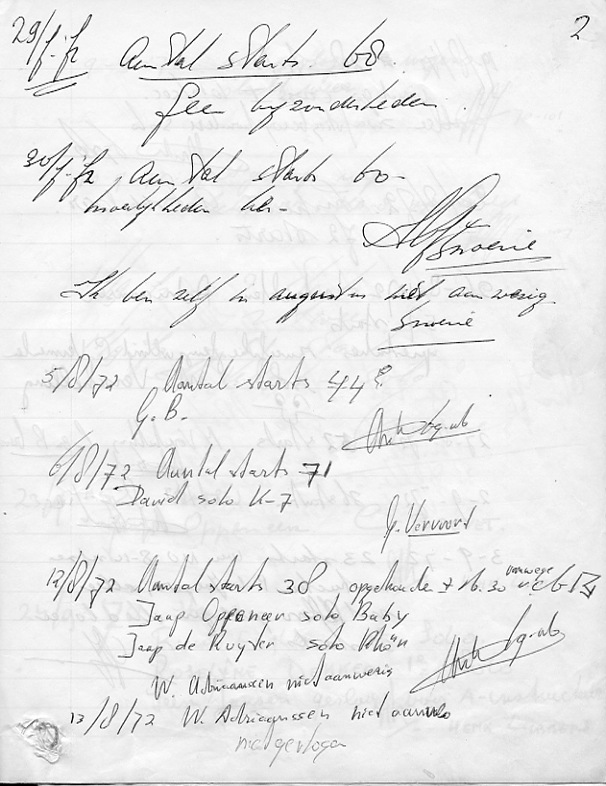 2
29/7-72 Aantal starts 68.
Geen byzonderheden.
30/7-72 Aantal starts 60-
moeilykheden
Smerie
Ik ben zelf in augustus niet aanwezig.
Smerie
5/8/72 Aantal starts 44
G.B.
6/8/72 Aantal starts 71
David solo K-7
J. Vervoort
12/8/72 Aantal starts 38 opgehouden ± 16.30 vanwege
Jaap Oppeneer solo Baby
Jaap de Kuyter solo Rhön
W. Adriaansen niet aanwezig
13/8/72 W. Adriaanssen niet aanwezig
niet gevlogen